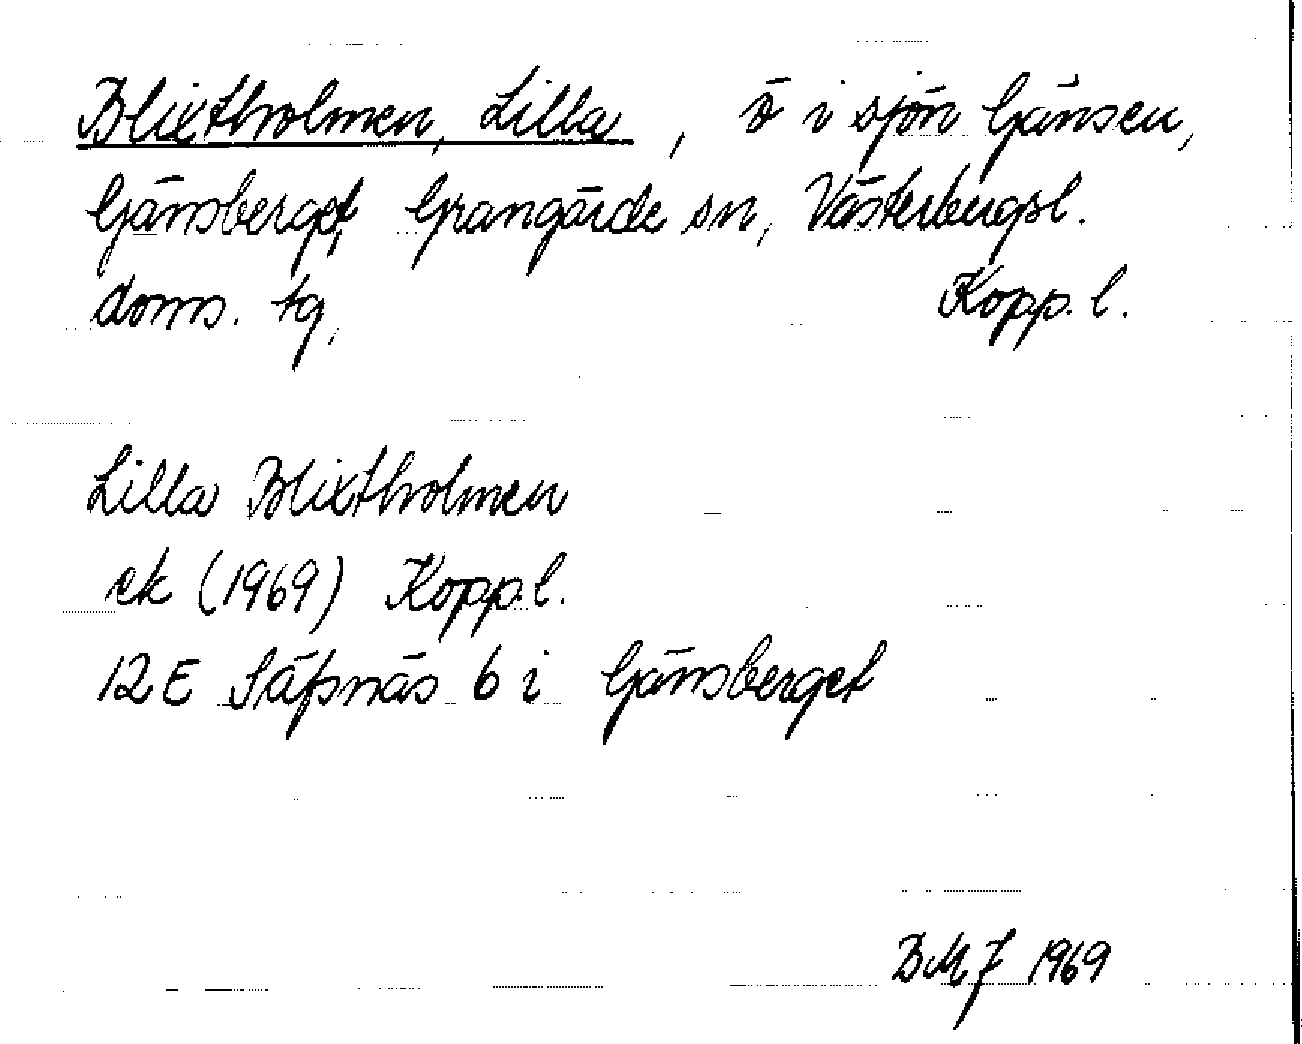 Blixtholmen, Lilla, ö i sjön Gänsen,
Gänsberget, Grangärde sn, Västerbergsl.
doms. tg, Kopp. l.
Lilla Blixtholmen
ek (1969) Kopp. l.
12E Säfsnäs 6 i Gänsberget
BMJ 1969